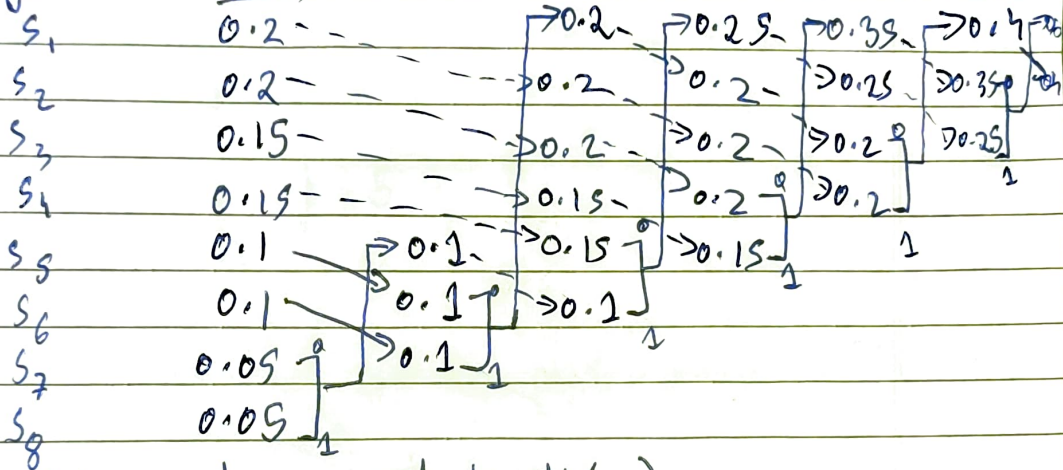 S1 0.2 0.2 0.25 0.35 0.4
S2 0.2 0.2 0.2 0.25 0.35 0
S3 0.15 0.2 0.2 0.2 0 0.25 1
S4 0.15 0.15 0.2 0 0.2 1
S5 0.1 0.1 0.15 0 0.15 1
S6 0.1 0.1 0 0.1 1
S7 0.05 0 0.1 1
S8 0.05 1